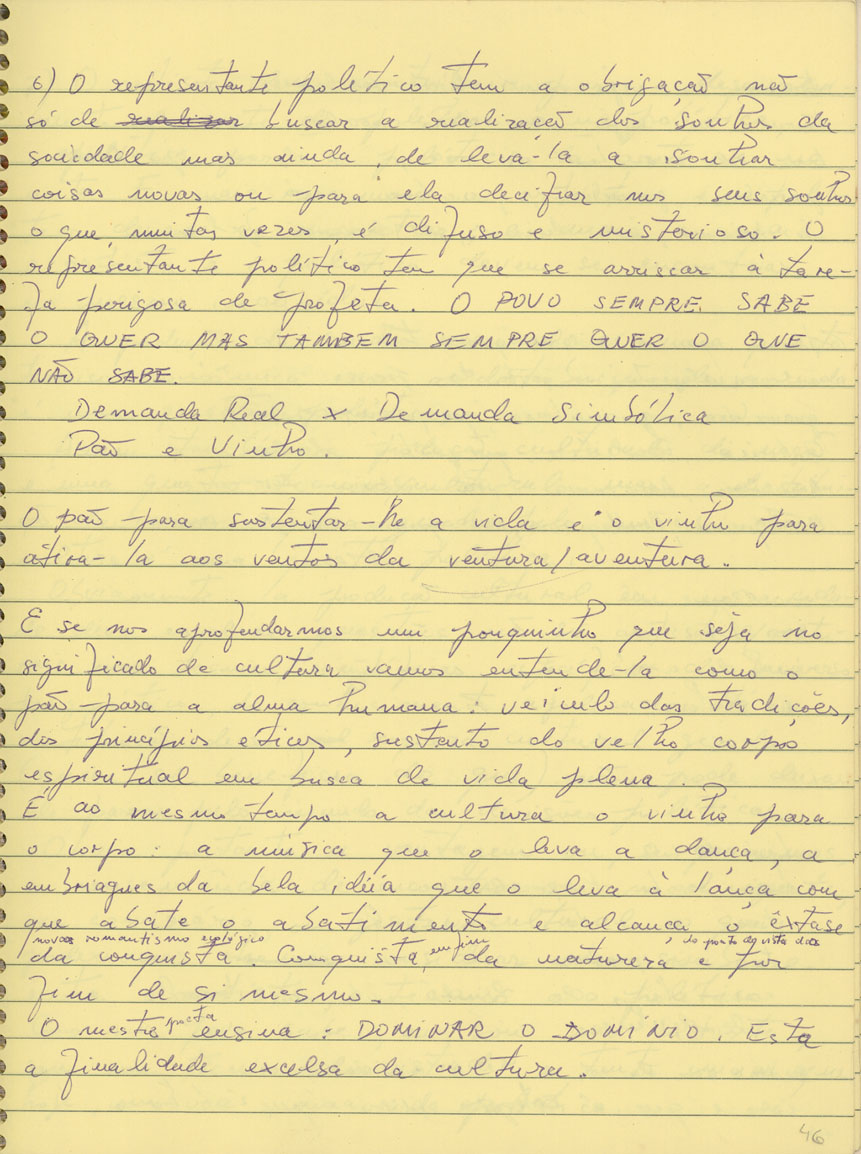 6) O representante político tem a obrigação não
só de realizar buscar a realização dos sonhos da
sociedade mas ainda, de levá-la a sonhar
coisas novas ou para ela decifrar nos seus sonhos
o que, muitas vezes, é difuso e misterioso. O
representante político tem que se arriscar à tare-
fa perigosa de profeta. O POVO SEMPRE SABE
O QUER MAS TAMBEM SEMPRE QUER O QUE
NÃO SABE.
Demanda Real x Demanda Simbólica
Pão e Vinho.
O pão para sustentar-lhe a vida e o vinho para
atira-la aos ventos da ventura/aventura.
E se nos aprofundarmos um pouquinho que seja no
significado de cultura vamos entende-la como o
pão para a alma humana: veículo das tradições,
dos princípios eticos, sustento do velho corpo
espiritual em busca de vida plena.
É ao mesmo tempo a cultura o vinho para
o corpo: a música que o leva a dança, a
embriagues da bela idéia que o leva à lança com
que abate o abatimento e alcança o êxtase
novos romantismo ecológico do ponto de vista das
da conquista. Conquista, enfim da natureza e por
fim de si mesmo.
O mestre poeta ensina: DOMINAR O DOMÍNIO. Esta
a finalidade excelsa da cultura.
46